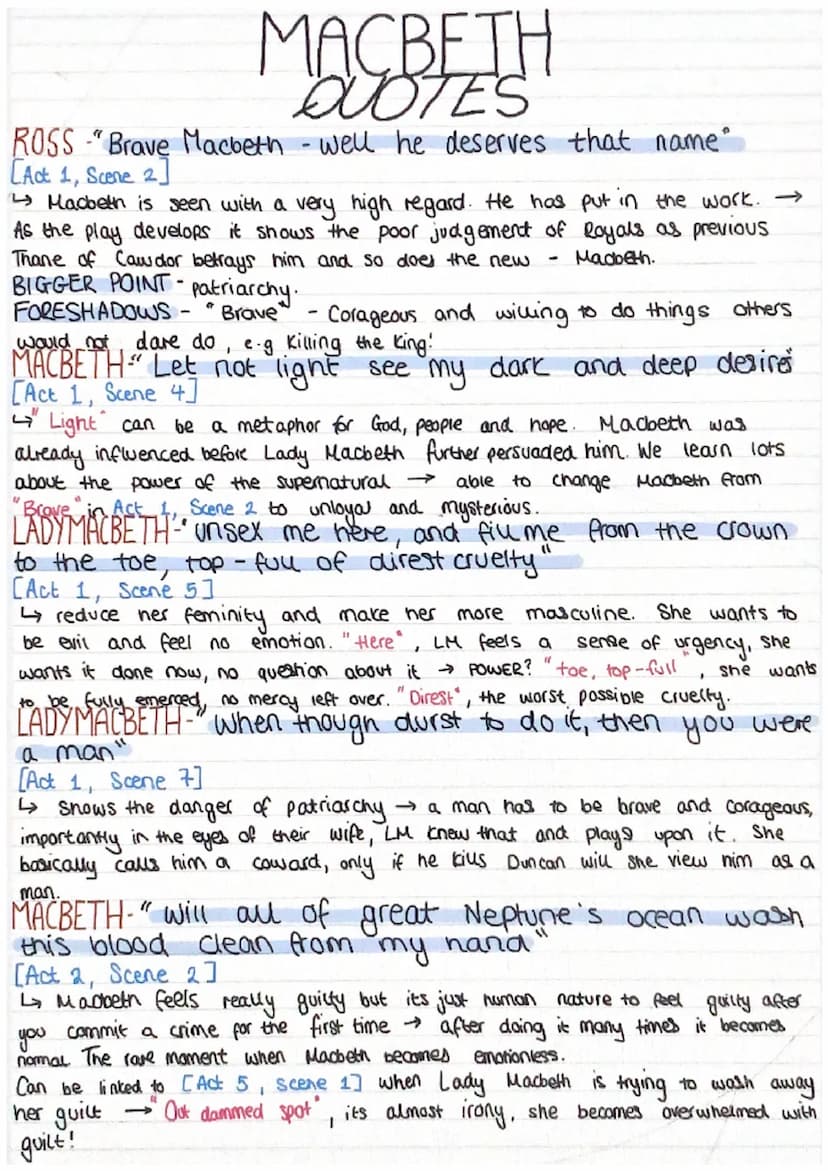 MACBETH
QUOTES
ROSS - "Brave Macbeth - well he deserves that name"
[Act 1, Scene 2]
↳ Macbeth is seen with a very high regard. He has put in the work. →
As the play develops it shows the poor judgement of Royals as previous
Thane of Cawdor betrays him and so does the new - Macbeth.
BIGGER POINT - patriarchy.
FORESHADOWS - "Brave" - Corageous and willing to do things others
would not dare do, e.g Killing the King!
MACBETH - "Let not light see my dark and deep desires"
[Act 1, Scene 4]
↳ "Light" can be a metaphor for God, people and hope. Macbeth was
already influenced before Lady Macbeth further persuaded him. We learn lots
about the power of the supernatural → able to change Macbeth from
"Brave" in Act 1, Scene 2 to unloyal and mysterious.
LADY MACBETH - "unsex me here, and fill me from the crown
to the toe, top-full of direst cruelty"
[Act 1, Scene 5]
↳ reduce her feminity and make her more masculine. She wants to
be evil and feel no emotion. "Here", LM feels a sense of urgency, she
wants it done now, no question about it → POWER? "toe, top-full", she wants
to be fully emerced, no mercy left over. "Direst", the worst possible cruelty.
LADY MACBETH - "when though durst to do it, then you were
a man"
[Act 1, Scene 7]
↳ Shows the danger of patriarchy → a man has to be brave and corageous,
importantly in the eyes of their wife, LM knew that and plays upon it. She
basically calls him a coward, only if he kills Duncan will she view him as a
man.
MACBETH - "will all of great Neptune's ocean wash
this blood clean from my hand"
[Act 2, Scene 2]
↳ Macbeth feels really guilty but its just human nature to feel guilty after
you commit a crime for the first time → after doing it many times it becomes
normal. The rare moment when Macbeth becomes emotionless.
Can be linked to [Act 5, scene 1] when Lady Macbeth is trying to wash away
her guilt → "Out dammed spot", its almost irony, she becomes overwhelmed with
guilt!